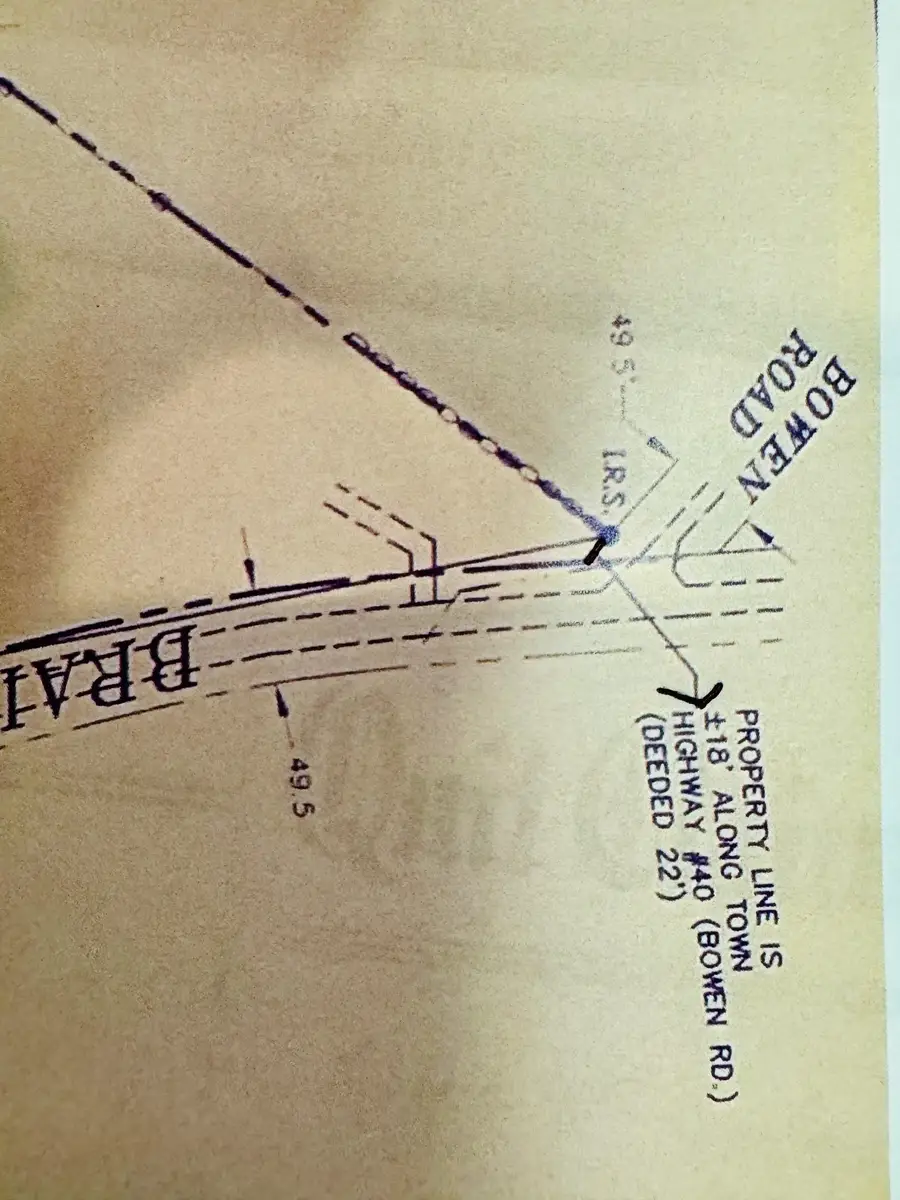 BOWEN
ROAD
49.5'
I.R.S.
PROPERTY LINE IS
±18' ALONG TOWN
HIGHWAY #40 (BOWEN RD.)
(DEEDED 22')
49.5
BRAI